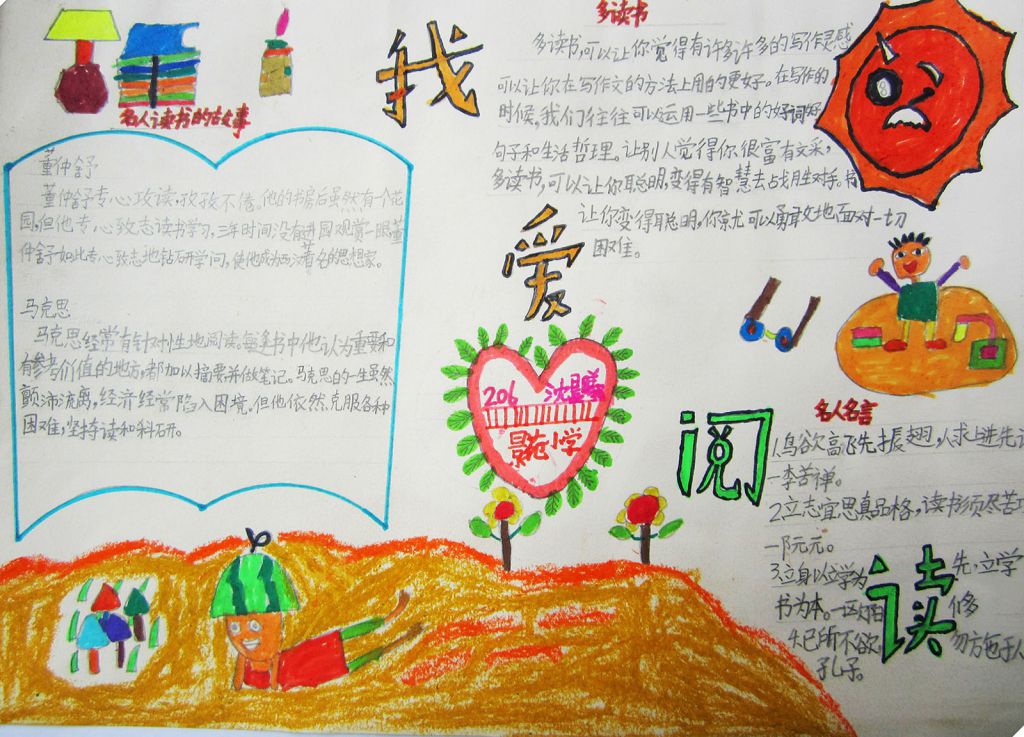 我
爱
阅
读
名人读书的故事
董仲舒
董仲舒专心攻读,孜孜不倦。他的书房后虽然有个花
园,但他专心致志读书学习,三年时间没有进园观赏一眼董
仲舒如此专心致志地钻研学问,使他成为西汉著名的思想家。
马克思
马克思经常有针对性地阅读每逢书中他认为重要和
有参考价值的地方,都加以摘要并做笔记。马克思的一生虽然
颠沛流离,经济经常陷入困境。但他依然克服各种
困难,坚持读和科研。
多读书
多读书,可以让你觉得有许多许多的写作灵感
可以让你在写作文的方法上用的更好。在写作的
时候,我们往往可以运用一些书中的好词好
句子和生活哲理。让别人觉得你很富有文采,
多读书,可以让你聪明,变得有智慧去战胜对手。书
让你变得聪明,你就可以勇敢地面对一切
困难。
206
景苑小学
名人名言
1.鸟欲高飞先振翅,人求上进先读
一李苦禅。
2.立志宜思真品格,读书须尽苦功
一阮元。
3.立身以立学为先,立学
书为本。一欧阳修
4.己所不欲勿方也于人
孔子。